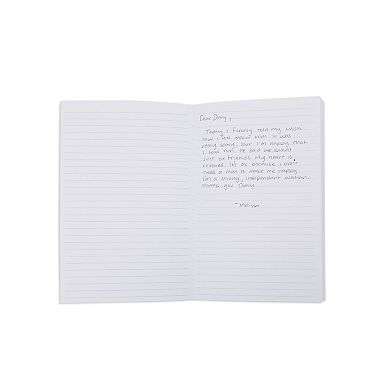 Dear Diary,
Today I finally told my crush
how I feel about him. It was
really scary, but I'm happy that
I told him. He said we should
just be friends. My heart is
crushed. It's ok because I don't
need a man to make me happy.
I'm a strong, independent woman.
Thank you Diary.